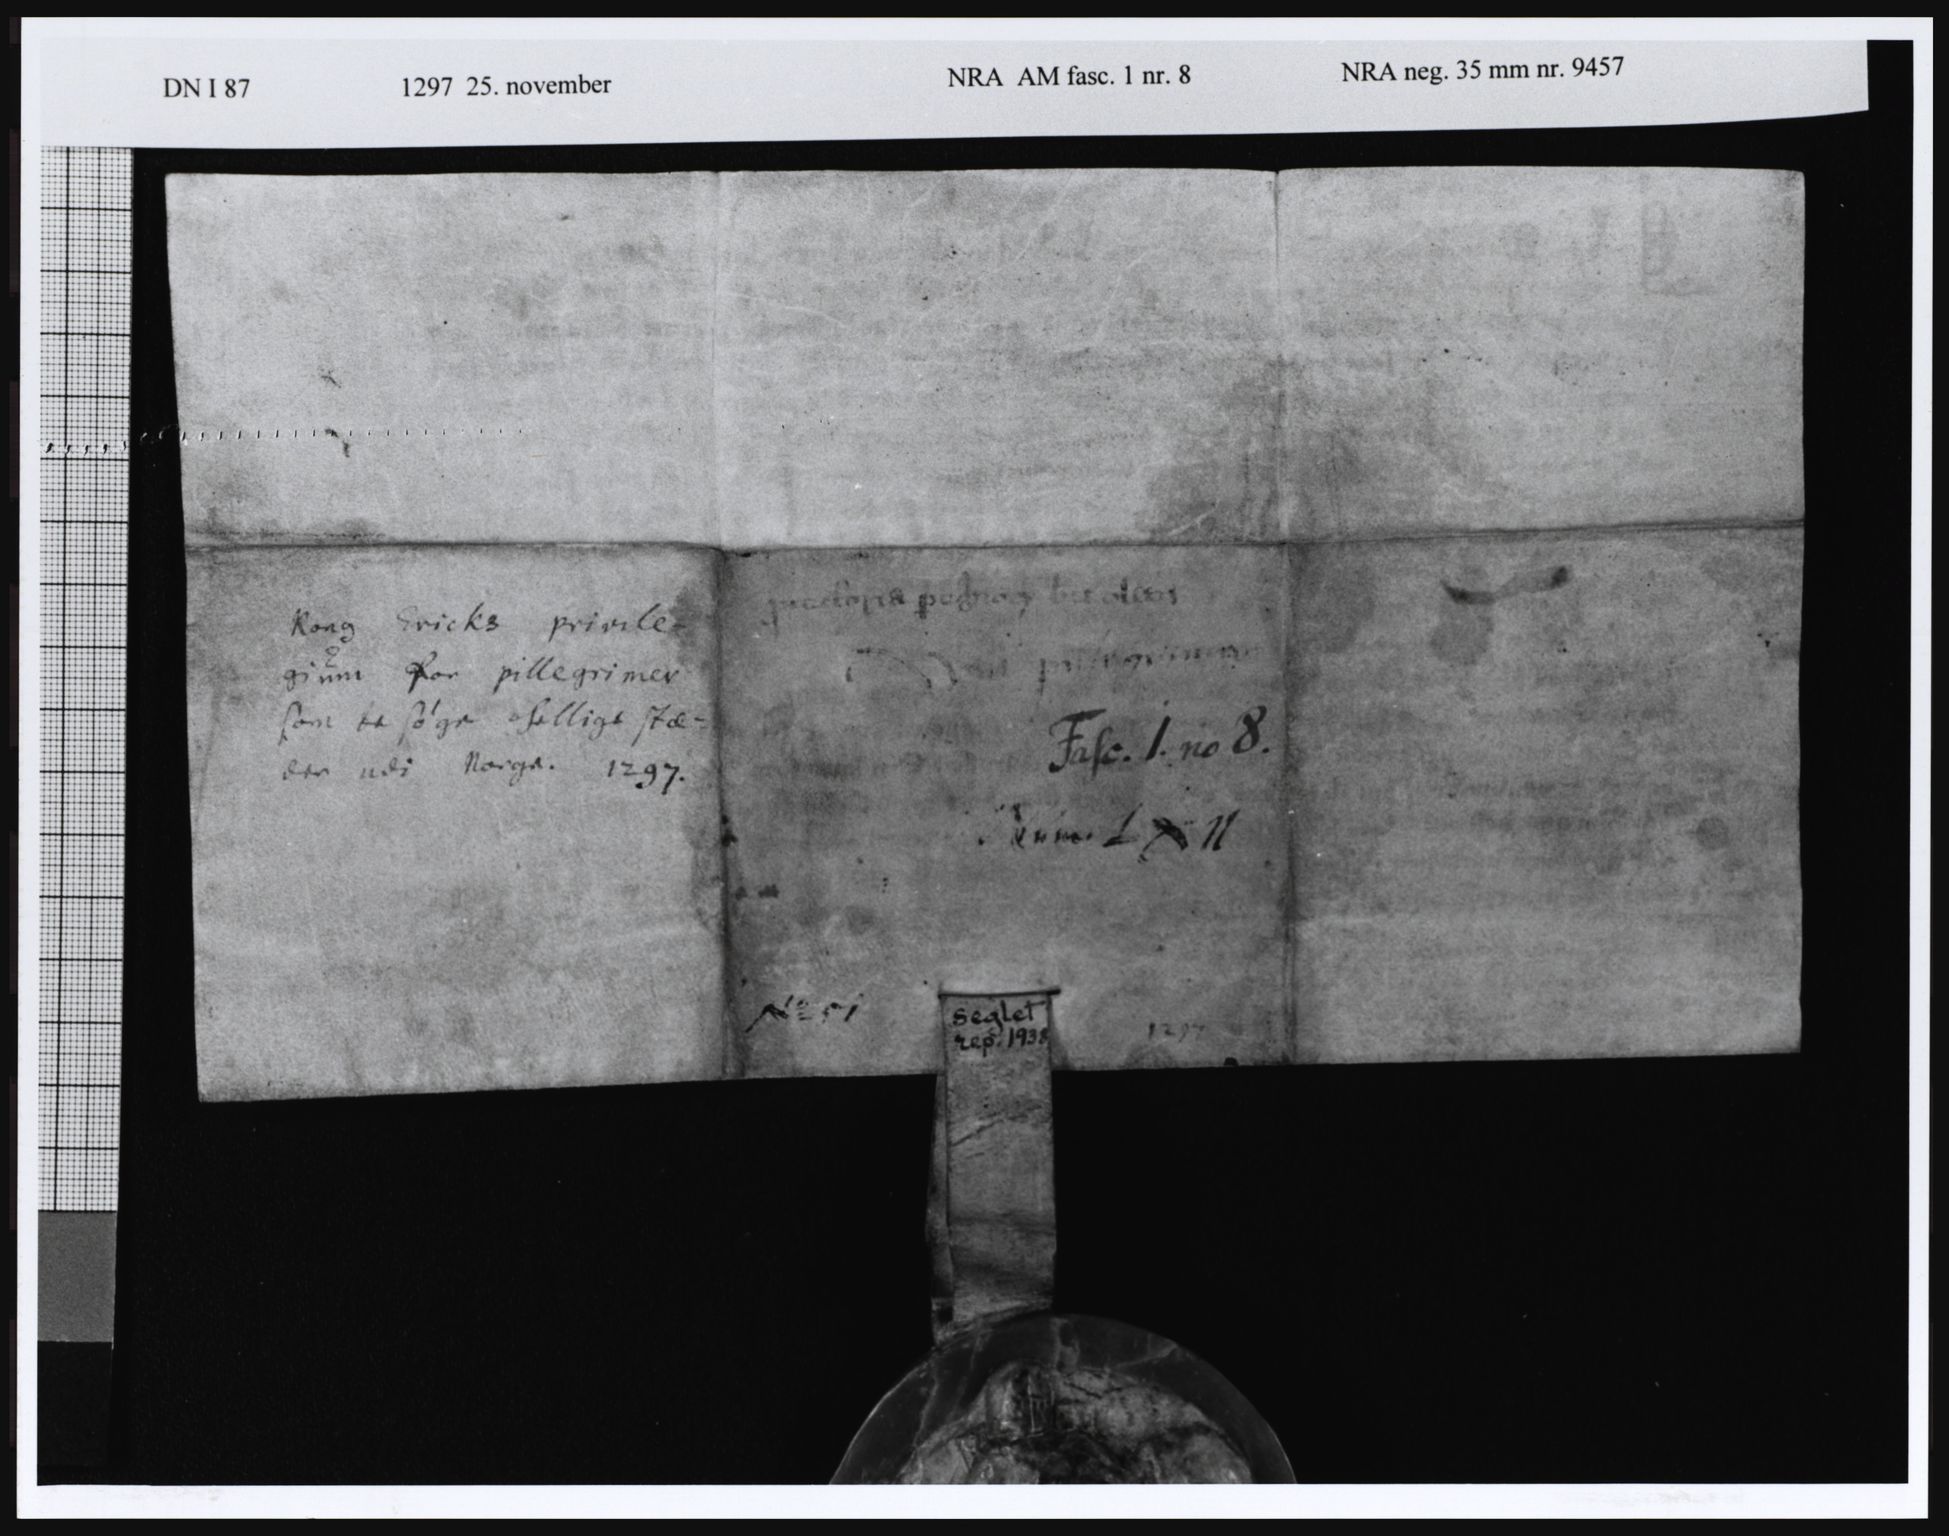 DN I 87 1297 25. november NRA AM fasc. 1 nr. 8 NRA neg. 35 mm nr. 9457
Kong Ericks privile-
gium for pillegrimer
som besøge hellige stæ-
der udi Norge. 1297.
pillegrimer
Fasc. 1. no 8.
No 51
seglet
rep. 1938
1297